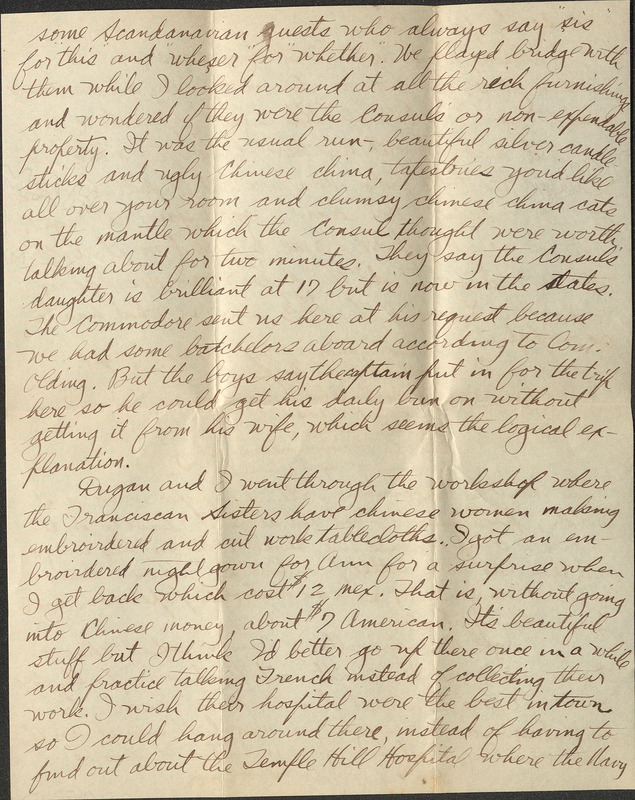 some Scandanavian guests who always say "sis"
for "this" and "wheser" for "whether". We played bridge with
them while I looked around at all the rich furnishings
and wondered if they were the Consul's or non-expendable
property. It was the usual run-, beautiful silver candle
sticks and ugly Chinese china, tapestries you'd like
all over your room and clumsy chinese china cats
on the mantle which the Consul thought were worth
talking about for two minutes. They say the Consul's
daughter is brilliant at 17 but is now in the States.
The Commodore sent us here at his request because
we had some batchelors aboard according to Com.
Olding. But the boys say the captain put in for the trip
here so he could get his daily bun on without
getting it from his wife, which seems the logical ex-
planation.
Dugan and I went through the workshop where
the Franciscan Sisters have chinese women making
embroirdered and cut work tablecloths. I got an em-
broirdered nightgown for Ann for a surprise when
I get back which cost $12 mex. That is, without going
into Chinese money, about $7 American. It's beautiful
stuff but I think I'd better go up there once in a while
and practice talking French instead of collecting their
work. I wish their hospital were the best in town
so I could hang around there, instead of having to
find out about the Temple Hill Hospital where the Navy